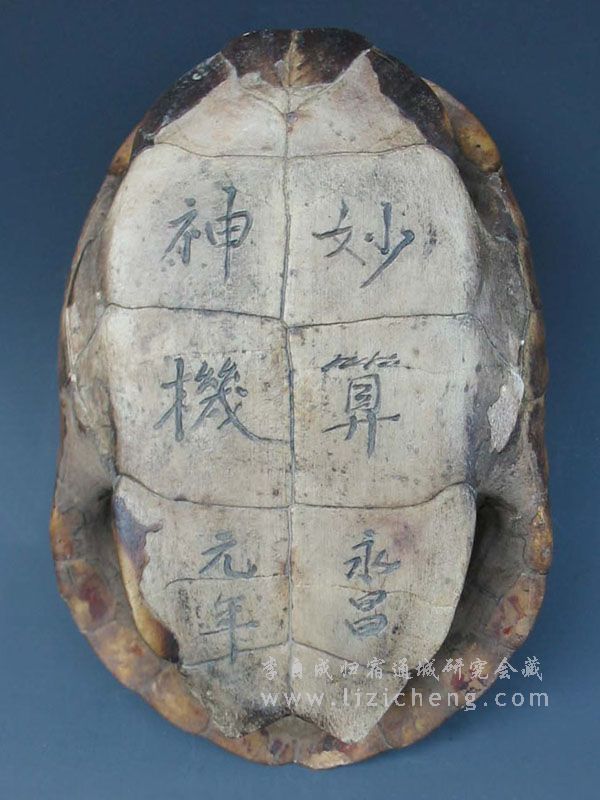 妙算
神機
永昌
元年
李自成归宿通城研究会藏
www.lizicheng.com